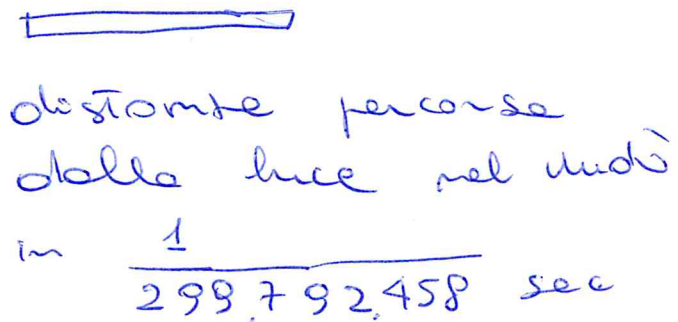 distanza percorsa
dalla luce nel vuoto
in 1
299.792.458 sec